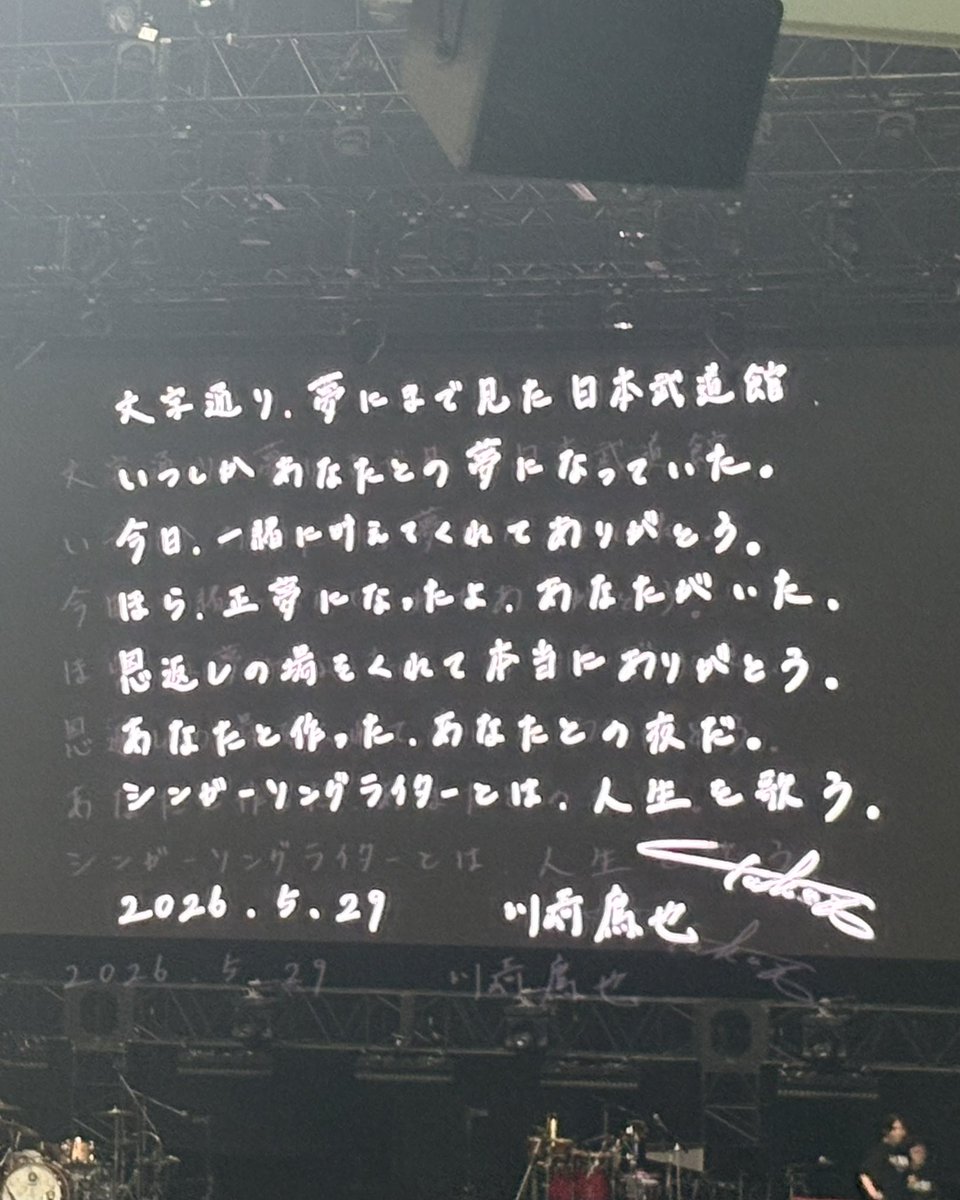 文字通り、夢にまで見た日本武道館、
いつしかあなたとの夢になっていた。
今日、一緒に叶えてくれてありがとう。
ほら、正夢になったよ、あなたがいた。
恩返しの場をくれて本当にありがとう。
あなたと作った、あなたとの夜だ。
シンガーソングライターとは、人生を歌う。
2026.5.29